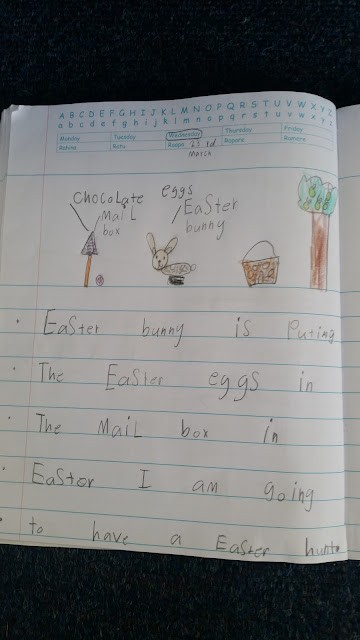 A B C D E F G H I J K L M N O P Q R S T U V W X Y Z
a b c d e f g h i j k l m n o p q r s t u v w x y z
Monday Tuesday Wednesday Thursday Friday
Rahina Ratu Raapa 23 rd Rapare Ramere
March
Chocolate eggs
Mail Easter
box bunny
Easter bunny is Puting
The Easter eggs in
The Mail box in
Easter I am going
to have a Easter hunt